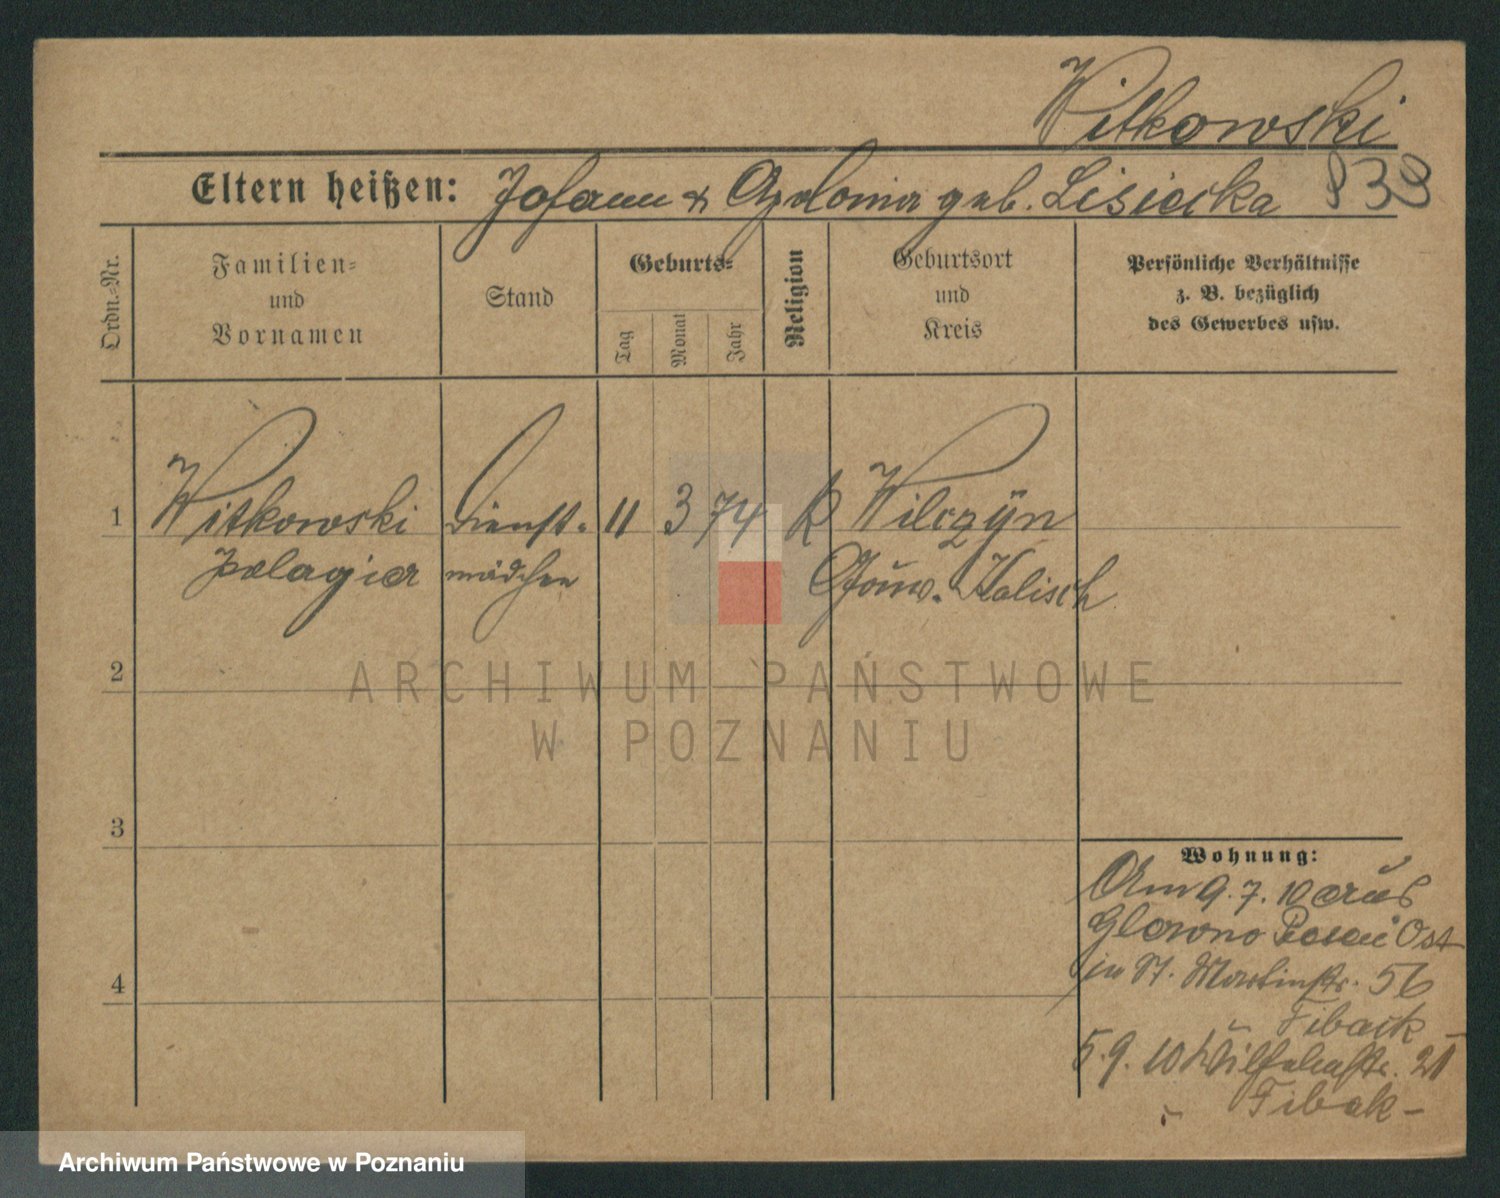 Witkowski
Eltern heißen: Johann & Apolonia geb. Lisiecka 839
Ordn.-Nr.
Familien-
und
Vornamen
Stand
Geburts-
Tag
Monat
Jahr
Religion
Geburtsort
und
Kreis
Persönliche Verhältnisse
z. B. bezüglich
des Gewerbes usw.
1 Witkowski Dienst- 11 3 74 K Wilczyn
Pelagia mädchen Gouv. Kalisch
2
3
4
Wohnung:
Am 9. 7. 10 aus
Glowno Posen Ost
in St. Martinstr. 56
Fiback
5. 9. 10 Wilhelmstr. 21
Fibak
ARCHIWUM PAŃSTWOWE
W POZNANIU
Archiwum Państwowe w Poznaniu